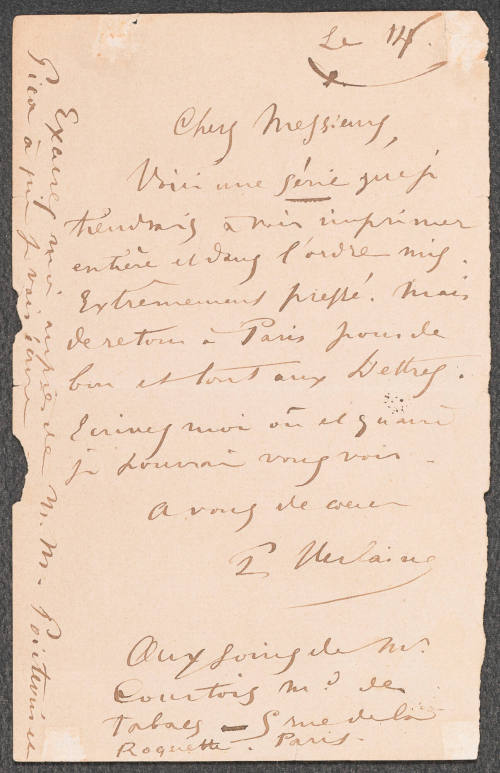 Le 14.
Chers Messieurs,
Voici une série que je
tiendrais à voir imprimer
entière et dans l'ordre mis.
Extrêmement pressé. Mais
de retour à Paris pour de
bon et tout aux Lettres.
Ecrivez moi où et quand
je pourrai vous voir.
A vous de cœur
P Verlaine
Aux soins de Mr
Courtois Md de
tabacs — 5 rue de la
Roquette. Paris.
Excusez moi auprès de M. M. Poictevin et
Pica à qui je vais écrire